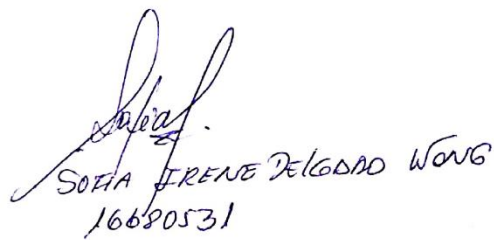 Sofia
SOFIA IRENE DELGADO WONG
16680531